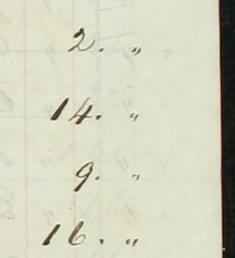 2. "
14. "
9. "
16. "